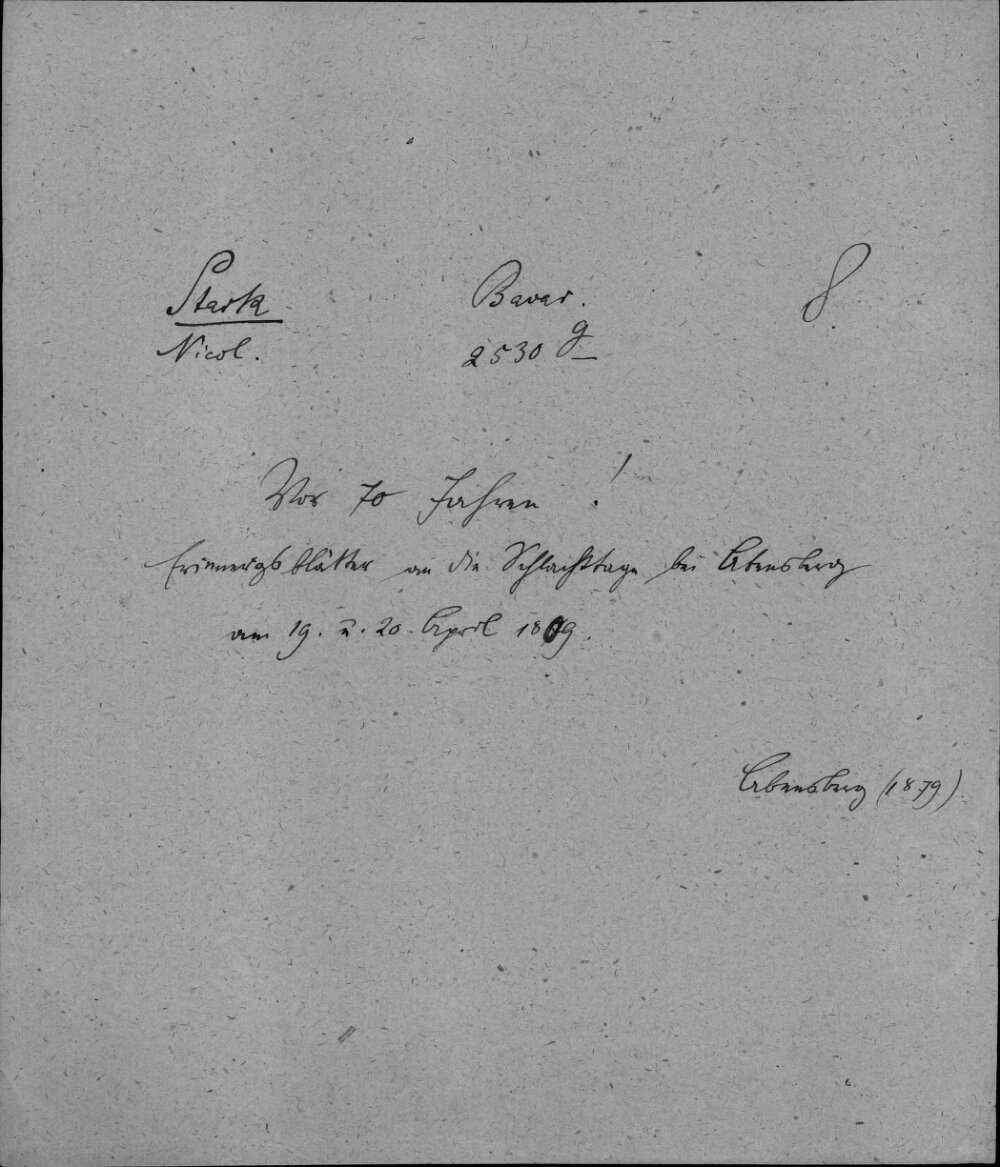 Stark Bavar. 8
Nicol. 2530 g
Vor 70 Jahren !
Erinnergsblätter an die Schlachttage bei Abensberg
am 19. u. 20. April 1809.
Abensberg (1879)